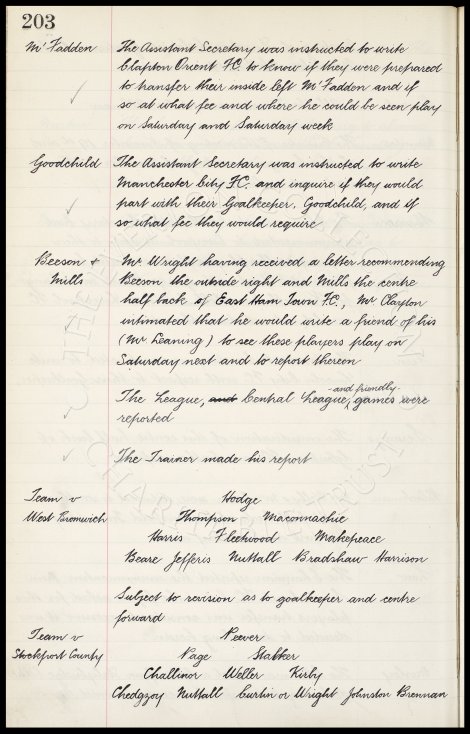 203
Mc Fadden The Assistant Secretary was instructed to write
Clapton Orient F.C. to know if they were prepared
to transfer their inside left Mc Fadden and if
so at what fee and where he could be seen play
on Saturday and Saturday week
Goodchild The Assistant Secretary was instructed to write
Manchester City F.C. and inquire if they would
part with their Goalkeeper, Goodchild, and if
so what fee they would require
Beeson & Mr Wright having received a letter recommending
Mills Beeson the outside right and Mills the centre
half back of East Ham Town F.C., Mr Clayton
intimated that he would write a friend of his
(Mr Leaning) to see these players play on
Saturday next and to report thereon
The League, and Central League, and friendly games were
reported
The Trainer made his report
Team v Hodge
West Bromwich Thompson Maconnachie
Harris Fleetwood Makepeace
Beare Jefferis Nuttall Bradshaw Harrison
Subject to revision as to goalkeeper and centre
forward
Team v Peever
Stockport County Page Stalker
Challinor Weller Kirby
Chedgzoy Nuttall Curtin or Wright Johnston Brennan
THE
CHARITABLE TRUST